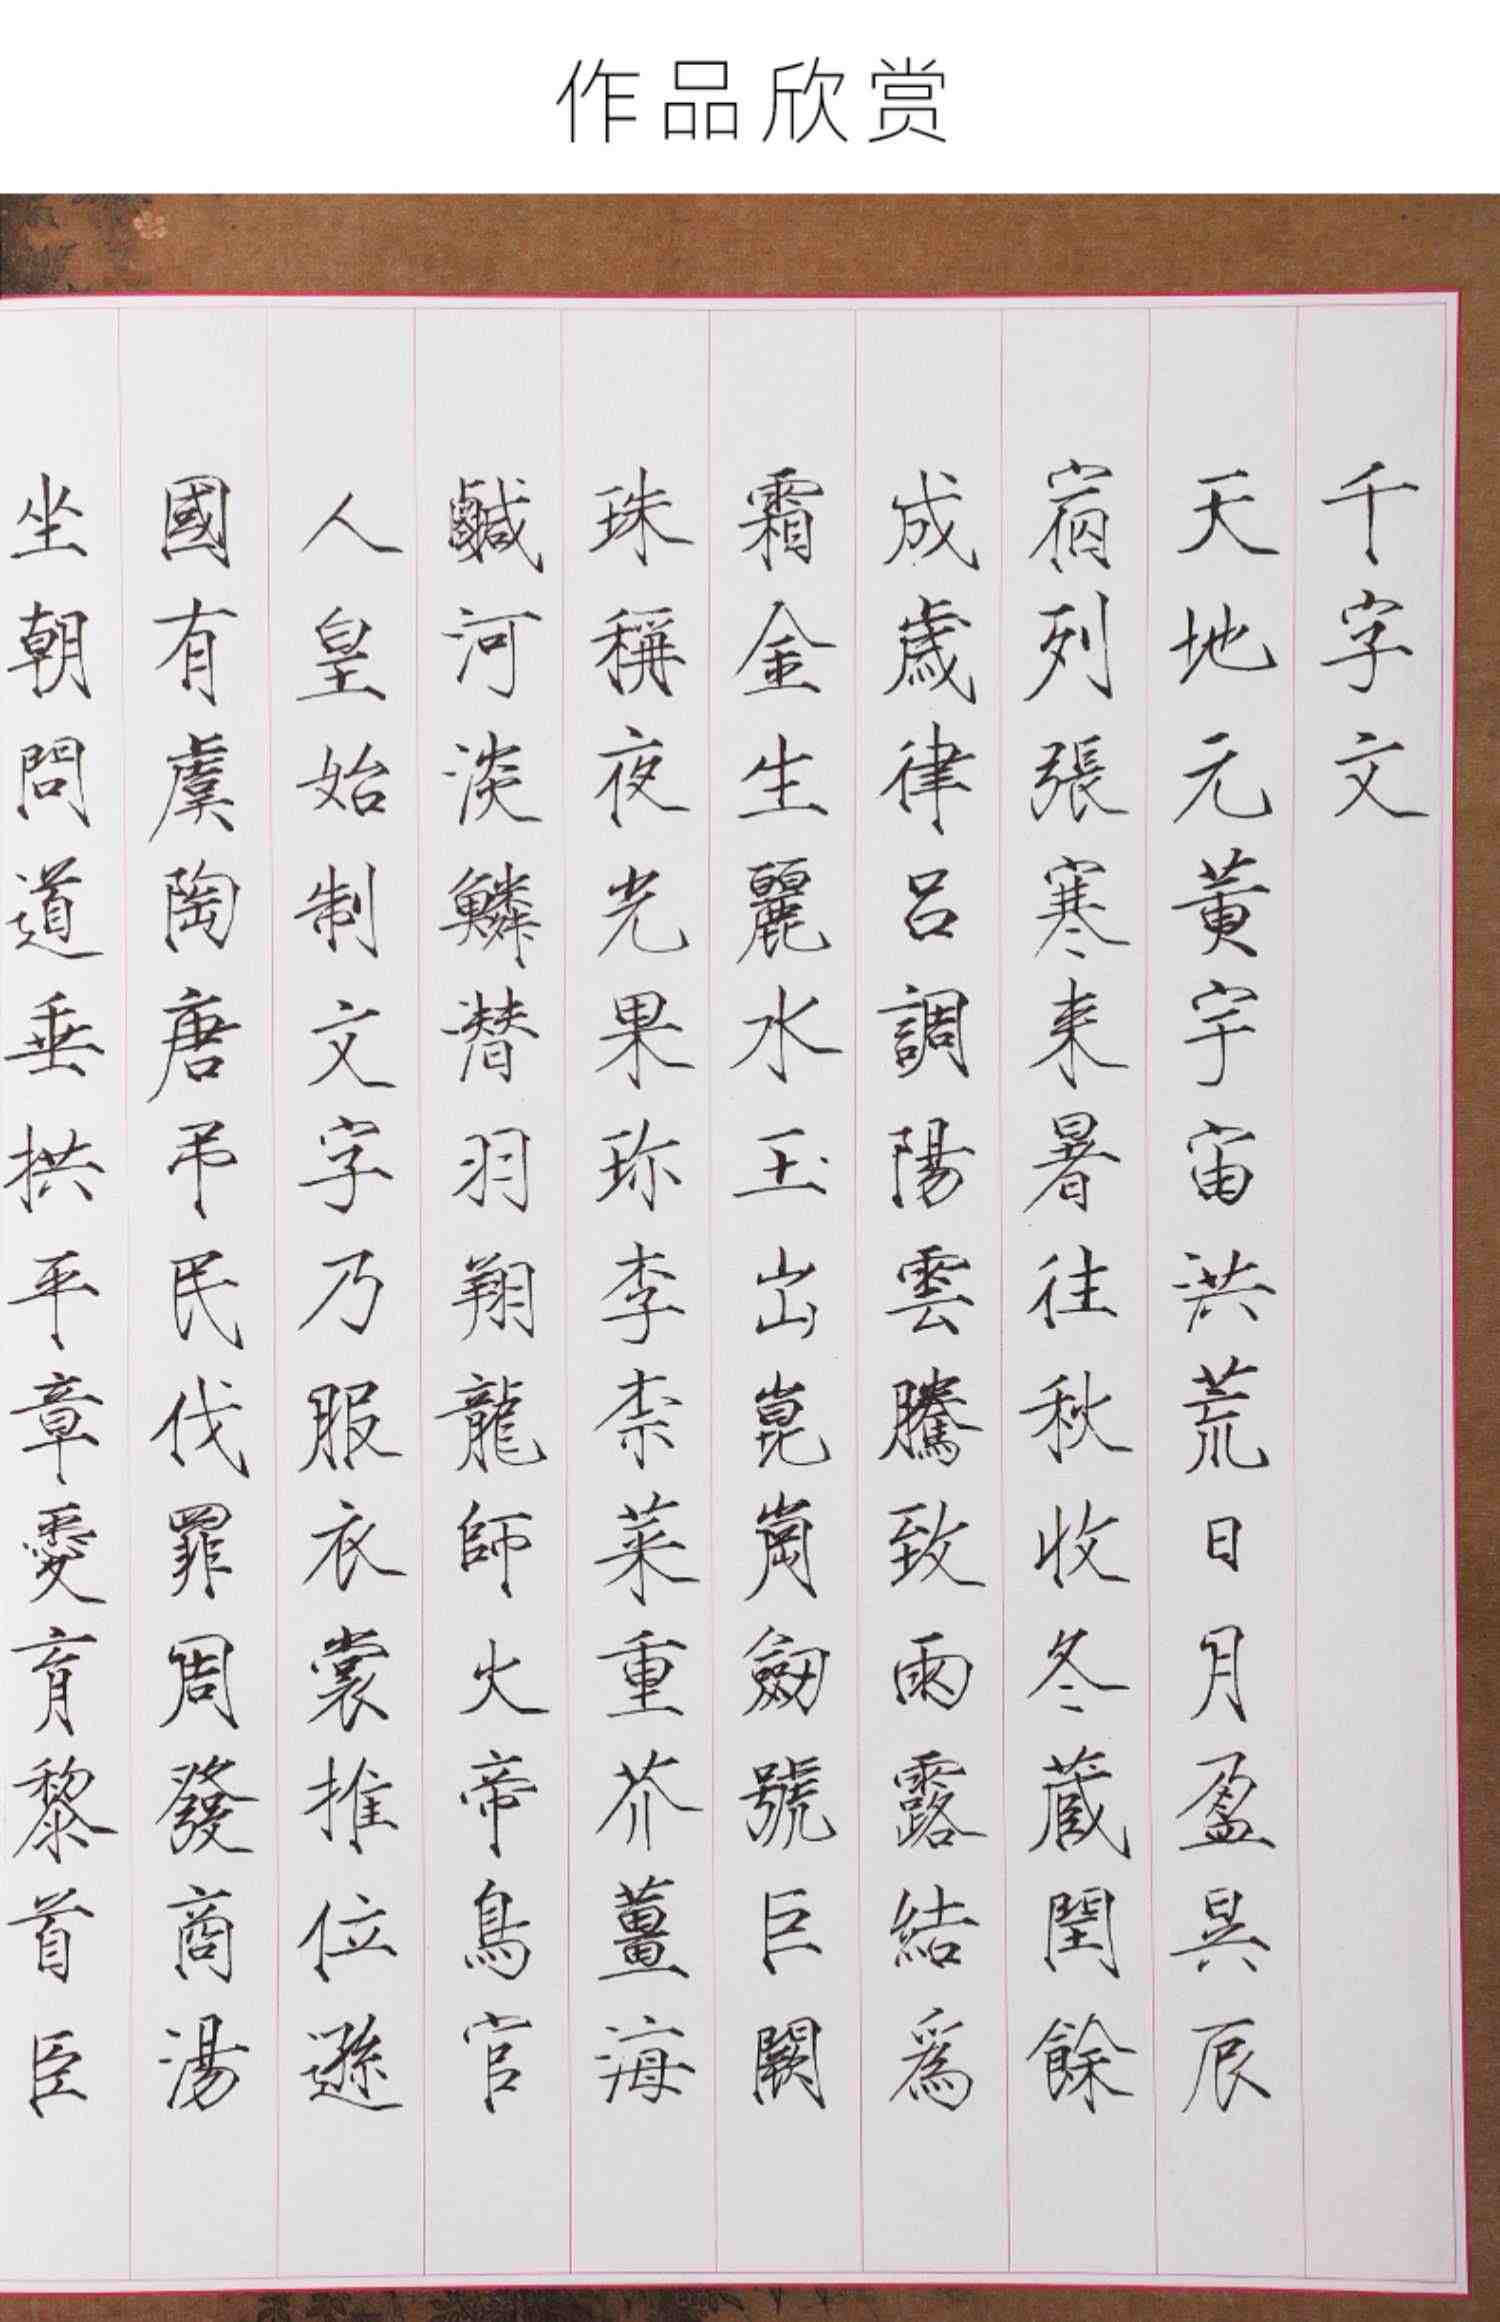 作品欣赏
千字文
天地元黄宇宙洪荒日月盈昃辰
宿列張寒来暑往秋收冬蔵閏餘
成歲律呂調陽雲騰致雨露結爲
霜金生麗水玉出崑崗劒號巨闕
珠稱夜光果珎李柰菜重芥薑海
鹹河淡鱗潜羽翔龍師火帝鳥官
人皇始制文字乃服衣裳推位遜
國有虞陶唐弔民伐罪周發商湯
坐朝問道垂拱平章愛育黎首臣